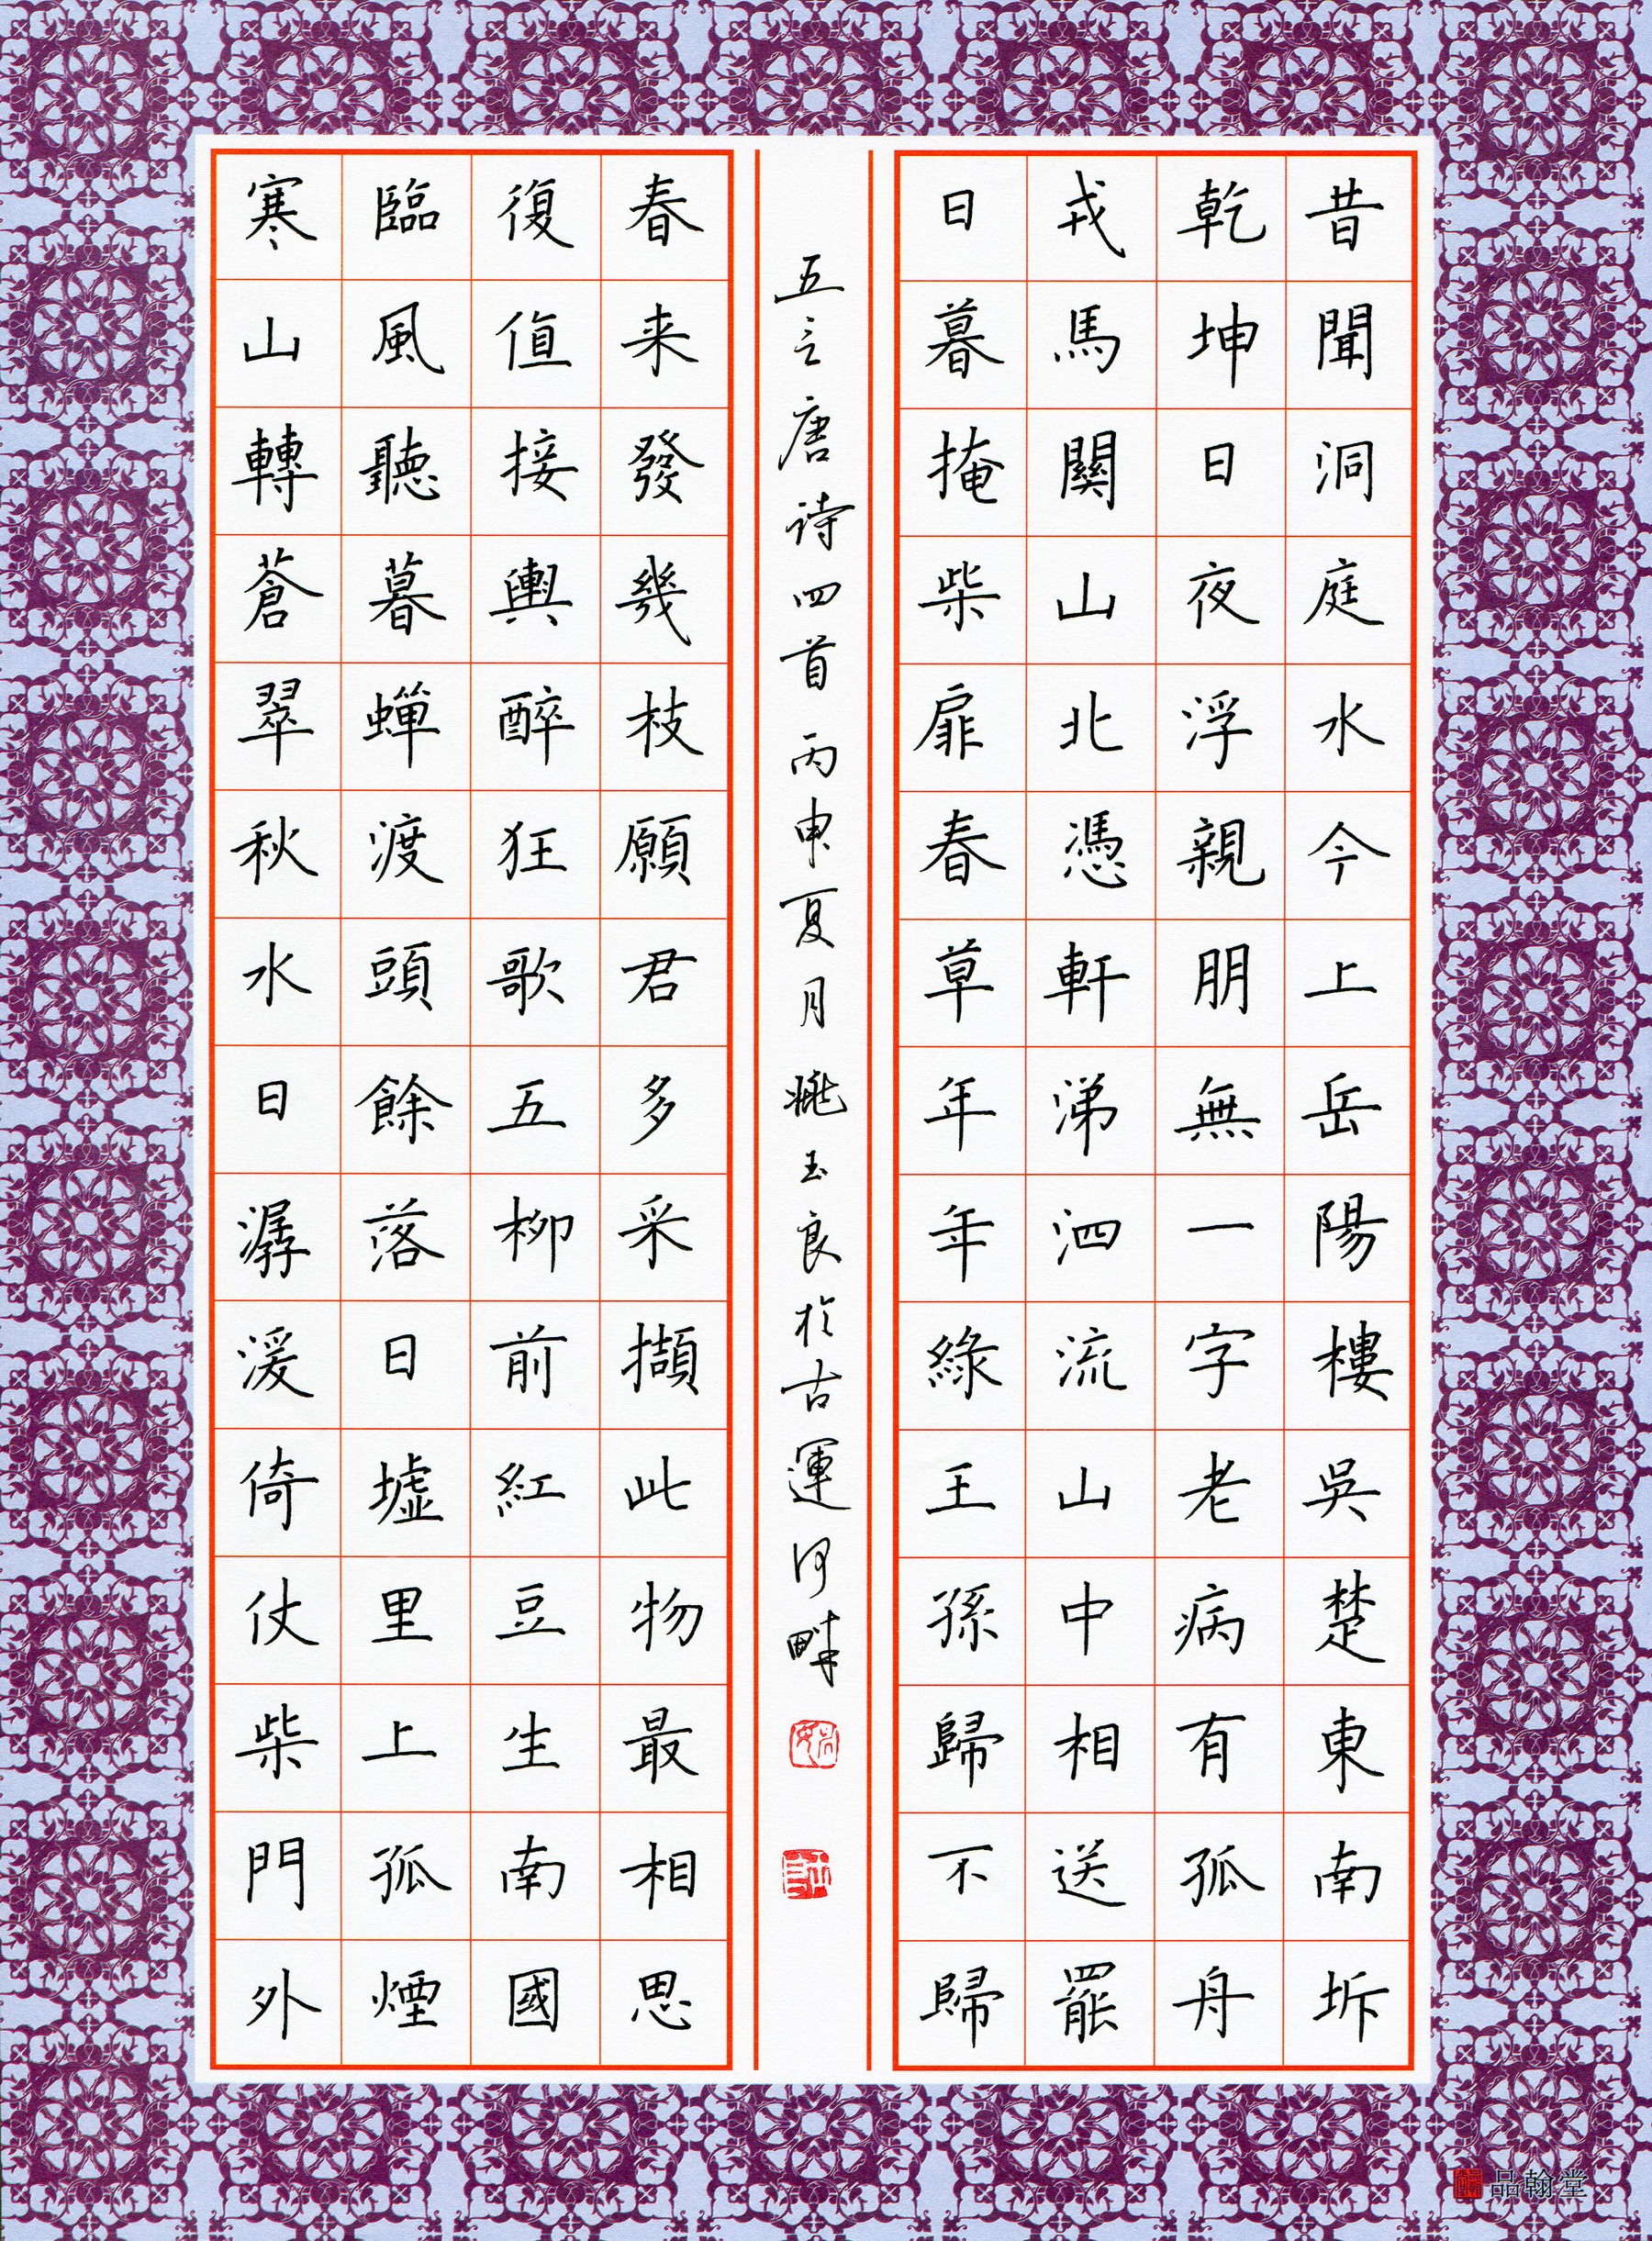 昔聞洞庭水今上岳陽樓吳楚東南坼
乾坤日夜浮親朋無一字老病有孤舟
戎馬關山北憑軒涕泗流山中相送罷
日暮掩柴扉春草年年綠王孫歸不歸
寒山轉蒼翠秋水日潺湲倚仗柴門外
臨風聽暮蝉渡頭餘落日墟里上孤煙
復值接輿醉狂歌五柳前紅豆生南國
春来發幾枝願君多采擷此物最相思
五言唐诗四首丙申夏月姚玉良於古運河畔
品翰堂